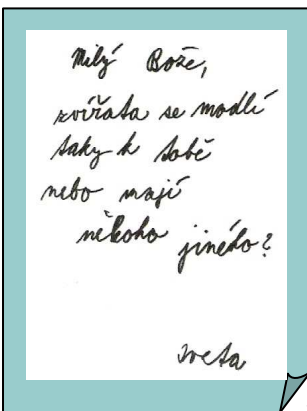 Milý Bože,
zvířata se modlí
taky k tobě
nebo mají
někoho jiného?
Iveta